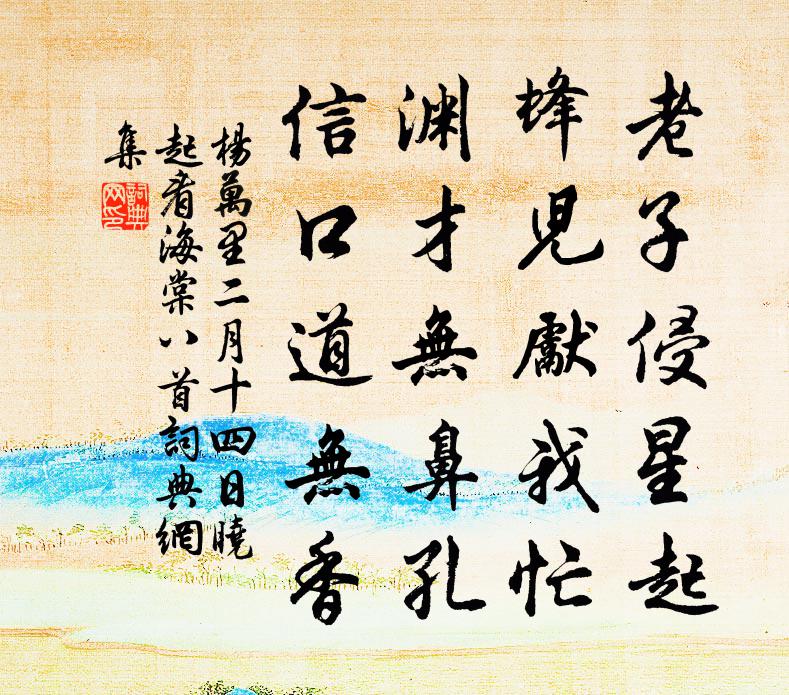 老子侵星起
蜂児獻我忙
渊才無鼻孔
信口道無香
楊萬里二月十四日曉
起看海棠八首詞典網
集
詞典
网印